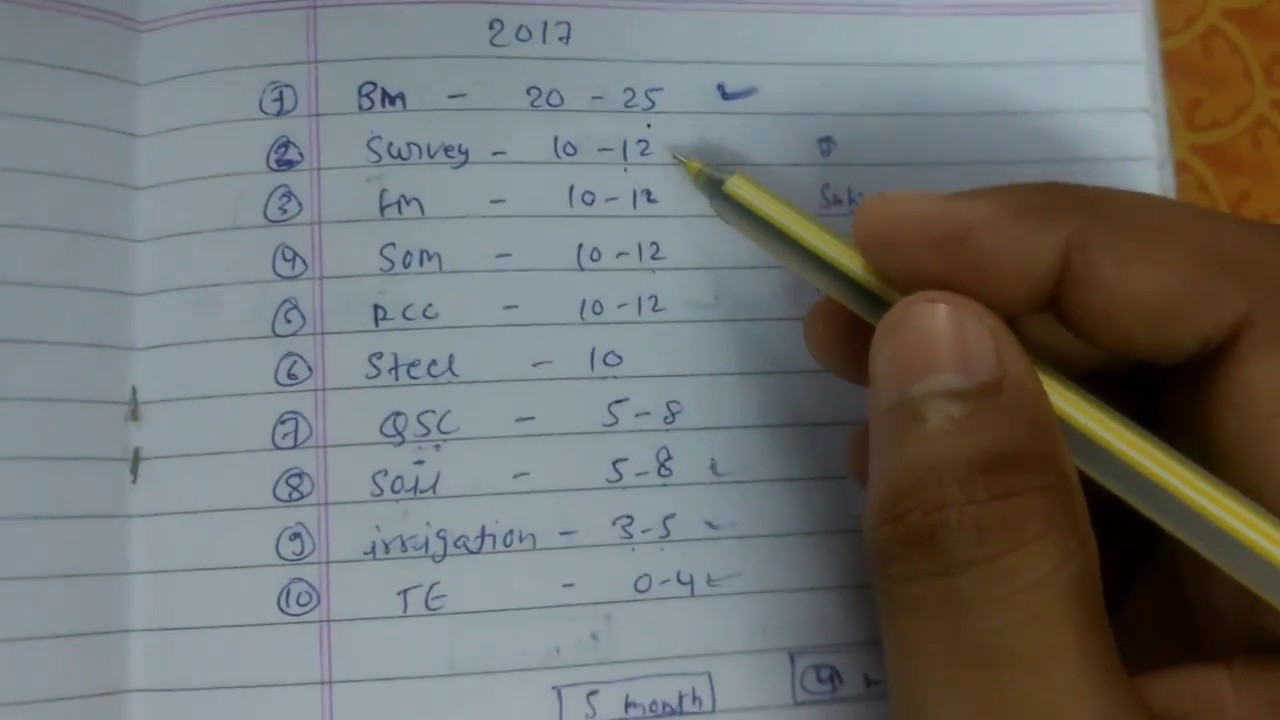 2017
① BM - 20 - 25 ✓
② Survey - 10 - 12
③ FM - 10 - 12
④ SOM - 10 - 12
⑤ RCC - 10 - 12
⑥ Steel - 10
⑦ QSC - 5 - 8
⑧ Soil - 5 - 8 ✓
⑨ irrigation - 3 - 5 ✓
⑩ TE - 0 - 4 ✓
5 month